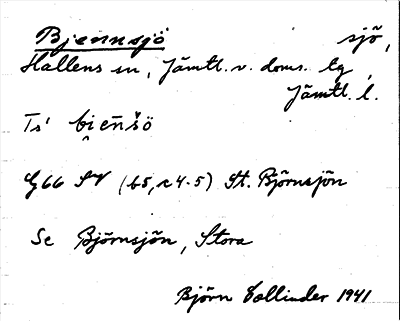 Bjennsjö sjö,
Hallens sn, Jämtl. v. doms. tg,
Jämtl. l.
Ts' bi̯en̄šö
G66 SV (b5,c4-5) St. Björnsjön
Se Björnsjön, Stora
Björn Collinder 1941